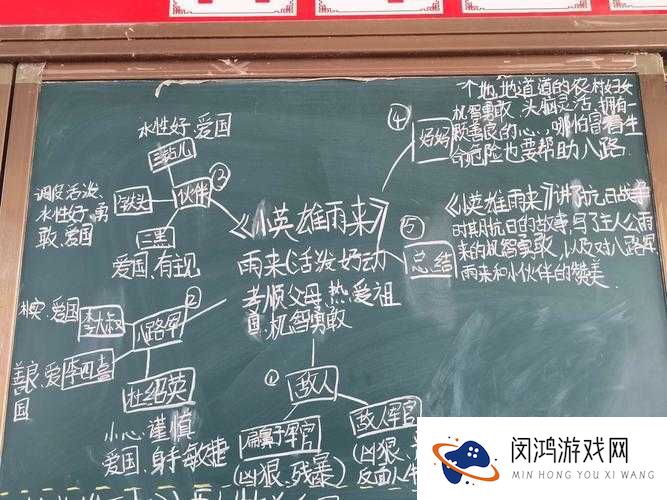 水性好、爱国
三钻儿
调皮活泼、
水性好、勇
敢、爱国
铁头
伙伴
③
三黑
爱国、有主见
《小英雄雨来》
雨来(活泼好动
孝顺父母、热爱祖
国、机智勇敢
④
好妈
一个地地道道的农村妇女
机智勇敢、头脑灵活、拥有一
颗善良的心、哪怕冒着生
命危险也要帮助八路.
⑤
总结
《小英雄雨来》讲了抗日战争
时其月抗日的故事,写了主人公雨
来的机智勇敢,以及对八路军、
雨来和小伙伴的赞美
②
八路军
朴实、爱国
李大叔
善良、爱
国
李四喜
杜绍英
小心、谨慎
爱国、身手敏捷
①
敌人
扁鼻子军官
(凶狠、残暴)
敌人军官
(凶狠、
反面人
闵鸿游戏网
MIN HONG YOU XI WANG